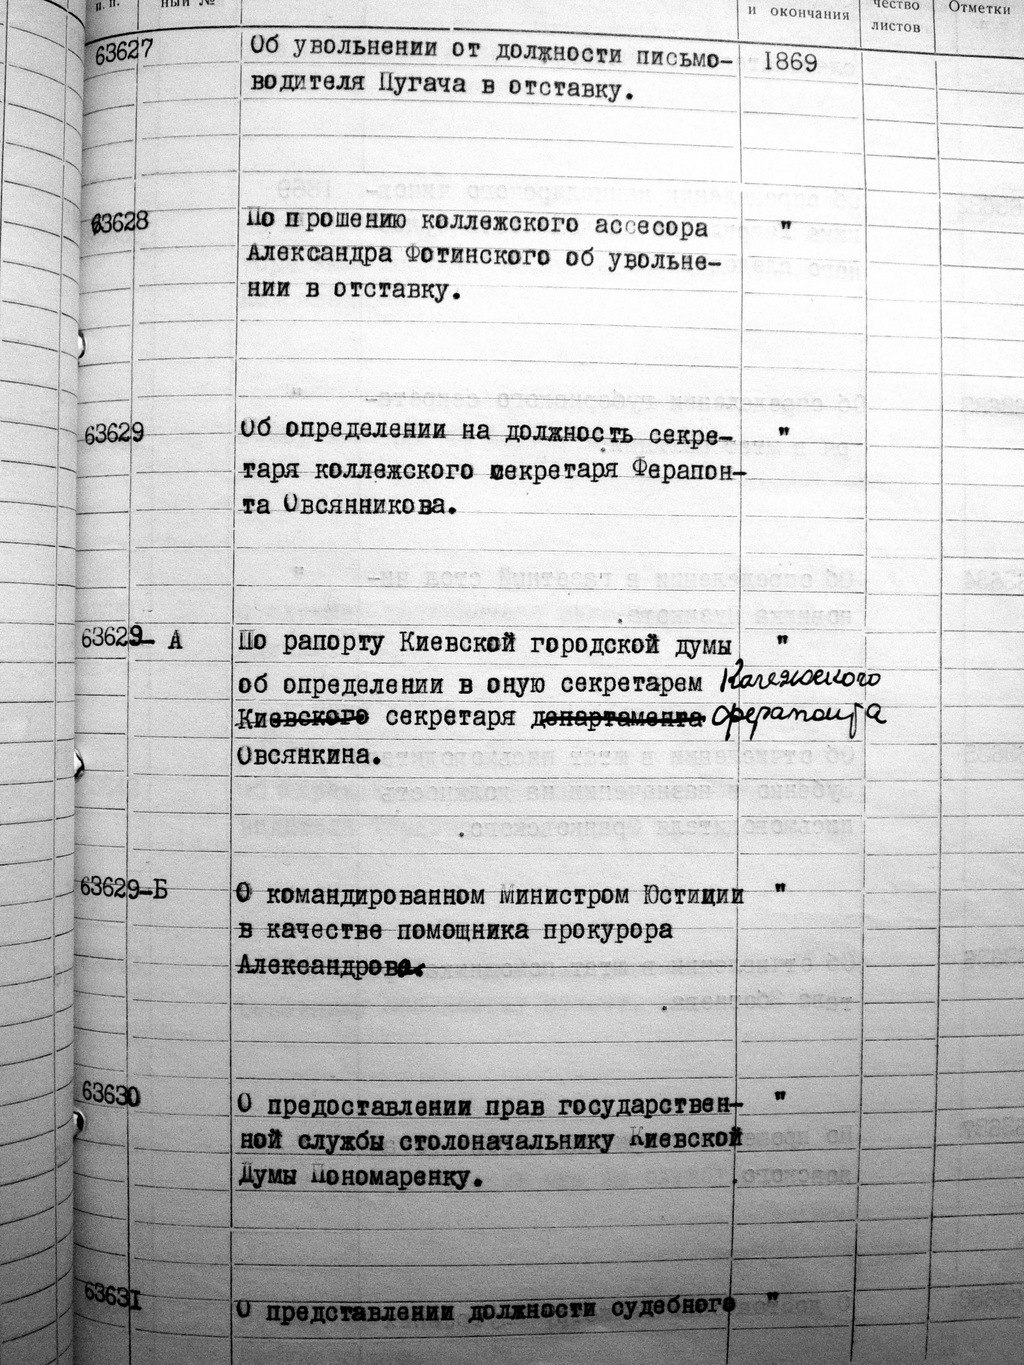 п. п. ный № и окончания чество листов Отметки
63627 Об увольнении от должности письмо- 1869
водителя Пугача в отставку.
63628 По прошению коллежского ассесора "
Александра Фотинского об увольне-
нии в отставку.
63629 Об определении на должность секре- "
таря коллежского секретаря Ферапон-
та Овсянникова.
63629- А По рапорту Киевской городской думы "
об определении в оную секретарем Коллежского
Киевского секретаря департамента Ферапонта
Овсянкина.
63629-Б О командированном Министром Юстиции "
в качестве помощника прокурора
Александрова.
63630 О предоставлении прав государствен- "
ной службы столоначальнику Киевской
Думы Пономаренку.
63631 О представлении должности судебного "